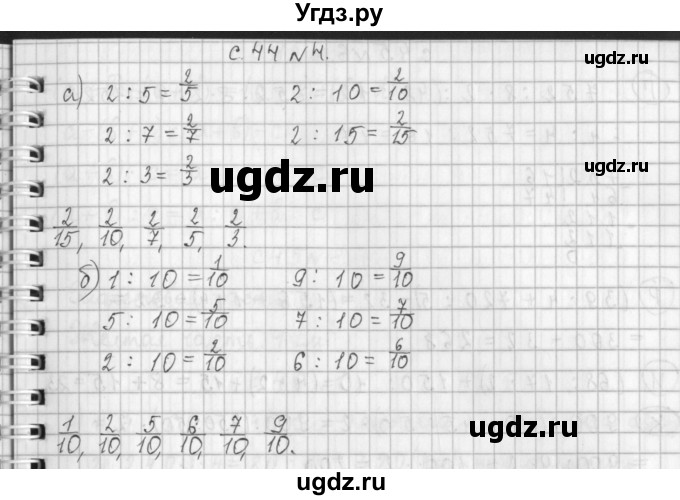 Угдз.ру
с. 44 № 4.
ugdz.ru
а) 2 : 5 = 2/5    2 : 10 = 2/10
2 : 7 = 2/7    2 : 15 = 2/15
ugdz.ru
2 : 3 = 2/3
ugdz.ru
2/15, 2/10, 2/7, 2/5, 2/3.
б) 1 : 10 = 1/10    9 : 10 = 9/10
5 : 10 = 5/10    7 : 10 = 7/10
2 : 10 = 2/10    6 : 10 = 6/10
1/10, 2/10, 5/10, 6/10, 7/10, 9/10.
ugdz.ru
ugdz.ru